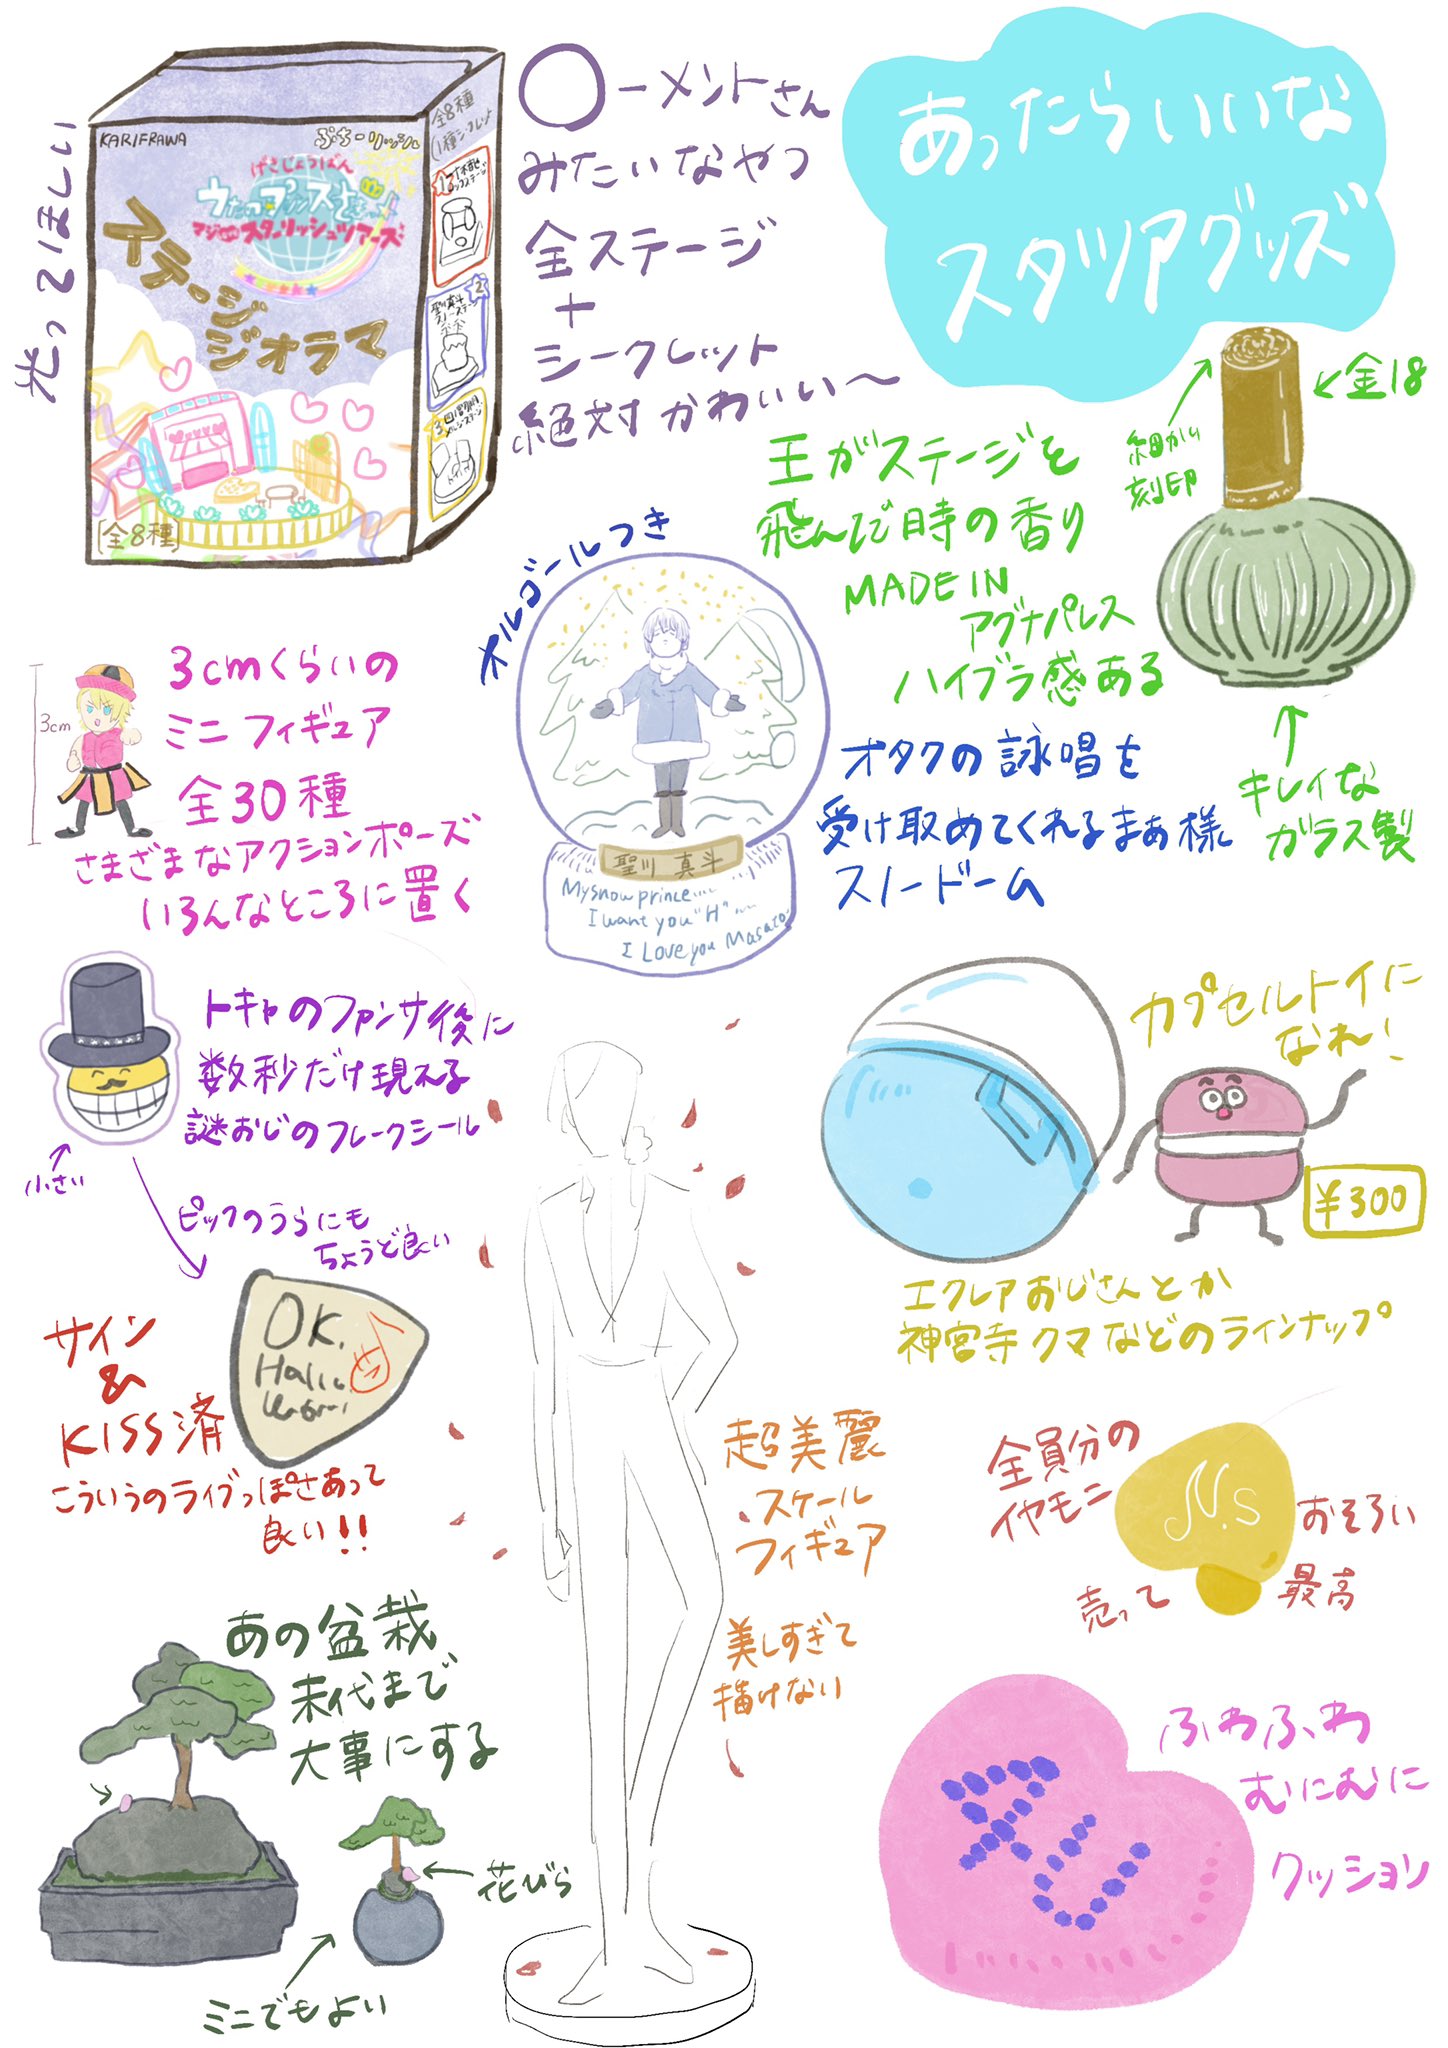 あったらいいな
スタツアグッズ
光ってほしい
KARIFRAWA
ぷちーりっしゅ
げきじょうばん
うたの☆プリンスさまっ♪
マジLOVEスターリッシュツアーズ
ステージ
ジオラマ
[全8種]
全8種
1種シークレット
1
聖川真斗
スノーステージ
2
3
◯ーメントさん
みたいなやつ
全ステージ
+
シークレット
絶対かわいい〜
金18
細かい
刻印
王がステージを
飛んだ時の香り
MADE IN
アグナパレス
ハイブラ感ある
キレイな
ガラス製
オルゴールつき
聖川 真斗
My snow prince....
I want you "H" ~~
I Love you Masato
オタクの詠唱を
受け取めてくれるまぁ様
スノードーム
3cm
3cmくらいの
ミニフィギュア
全30種
さまざまなアクションポーズ
いろんなところに置く
トキヤのファンサ後に
数秒だけ現える
謎おじのフレークシール
小さい
ピックのうらにも
ちょうど良い
サイン
&
KISS済
OK.
こういうのライブっぽさあって
良い!!
カプセルトイに
なれ!
¥300
エクレアおじさんとか
神宮寺クマなどのラインナップ
超美麗
スケール
フィギュア
美しすぎて
描けない
全員分の
イヤモニ
N.S
おそろい
売って
最高
あの盆栽
末代まで
大事にする
花びら
ミニでもよい
ふわふわ
むにむに
クッション